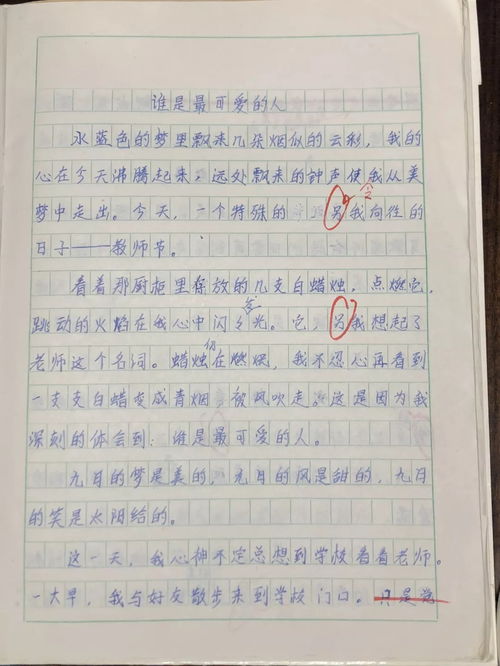 谁是最可爱的人
水蓝色的梦里飘来几朵烟似的云彩，我的
心在今天沸腾起来，远处飘来的钟声使我从美
梦中走出。今天，一个特殊的 另我向往的
令
日子——教师节。
看着那厨柜里存放的几支白蜡烛，点燃它，
跳动的火焰在我心中闪闪光。它，另我想起了
老师这个名词。蜡烛仍在燃烟，我不忍心再看到
一支支白蜡变成青烟 被风吹走。这是因为我
深刻的体会到：谁是最可爱的人。
九月的梦是美的，九月的风是甜的，九月
的笑是太阳给的。
这一天，我心神不定总想到学校看看老师。
一大早，我与好友散步来到学校门口。只是觉